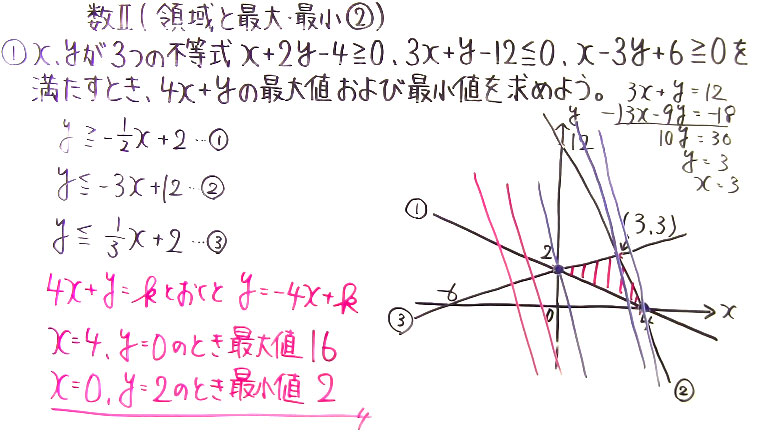 数Ⅱ(領域と最大・最小②)
①x、yが3つの不等式 x+2y-4≧0、3x+y-12≦0、x-3y+6≧0を
満たすとき、4x+yの最大値および最小値を求めよう。
3x+y=12
-)3x-9y=-18
10y=30
y=3
x=3
y≧-1/2x+2…①
y≦-3x+12…②
y≦1/3x+2…③
4x+y=kとおくと y=-4x+k
x=4、y=0のとき最大値16
x=0、y=2のとき最小値2
y
12
①
(3,3)
2
-6
0
4
x
③
②